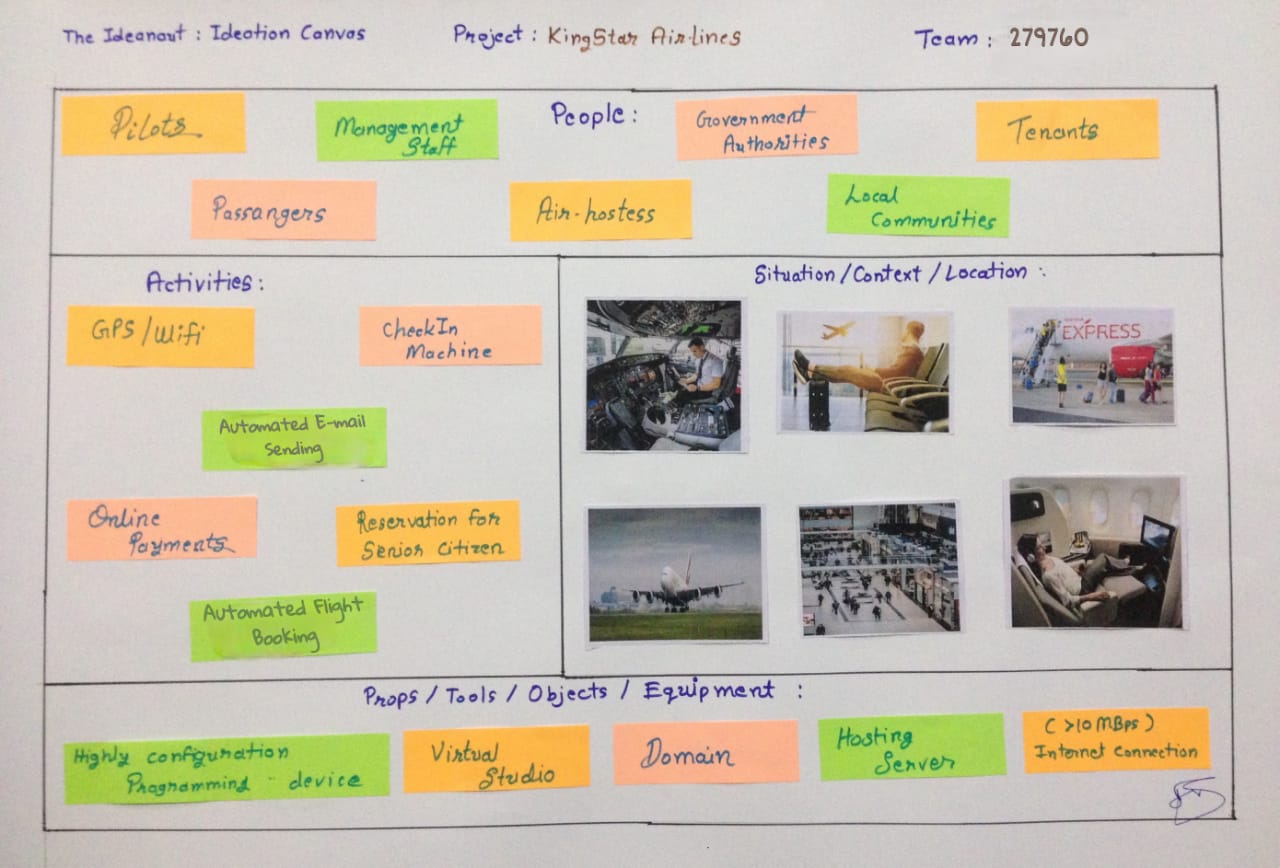 The Ideanaut : Ideation Canvas Project : KingStar Air-lines Team : 279760
People :
Pilots
Management
Staff
Government
Authorities
Tenants
Passangers
Air-hostess
Local
Communities
Activities :
GPS / Wifi
CheckIn
Machine
Automated E-mail
Sending
Online
Payments
Reservation for
Senior Citizen
Automated Flight
Booking
Situation / Context / Location :
EXPRESS
Props / Tools / Objects / Equipment :
Highly configuration
Programming device
Virtual
Studio
Domain
Hosting
Server
( >10 MBps )
Internet Connection